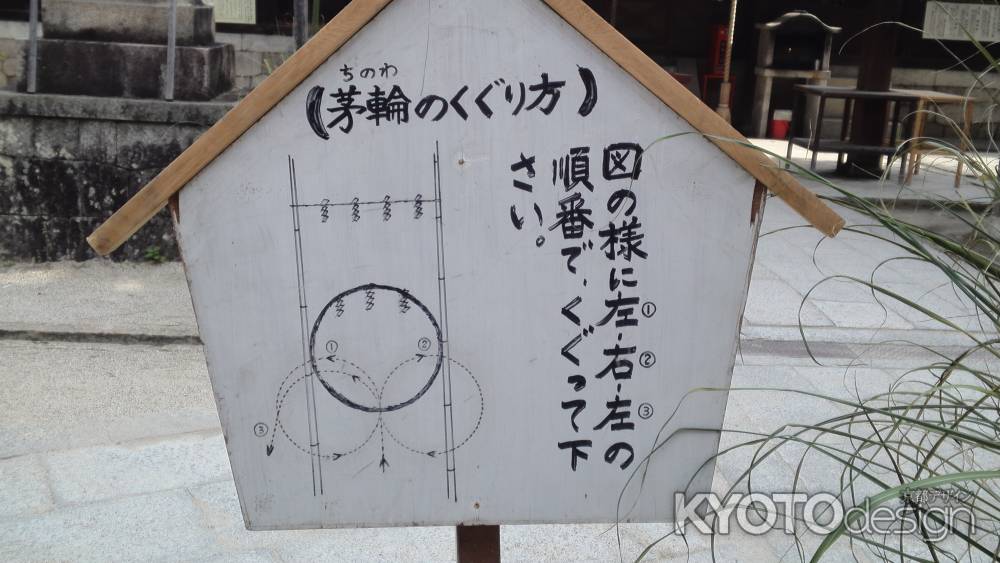 ちのわ
(茅輪のくぐり方)
図の様に左-右-左の
① ② ③
順番で、くぐって下
さい。
① ②
③
KYOTOdesign
京都デザイン